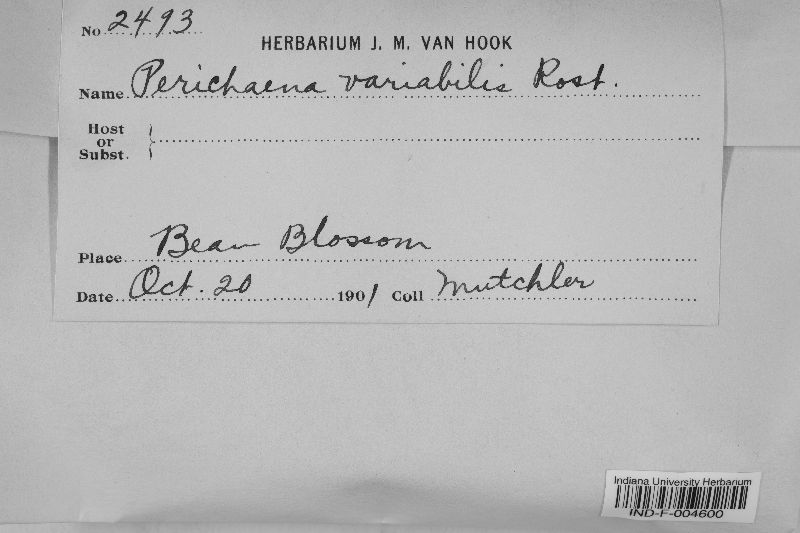 No. 2493
HERBARIUM J. M. VAN HOOK
Name Perichaena variabilis Rost.
Host
or
Subst.
Place Bean Blossom
Date Oct. 20 1901 Coll Mutchler
Indiana University Herbarium
IND-F-004600